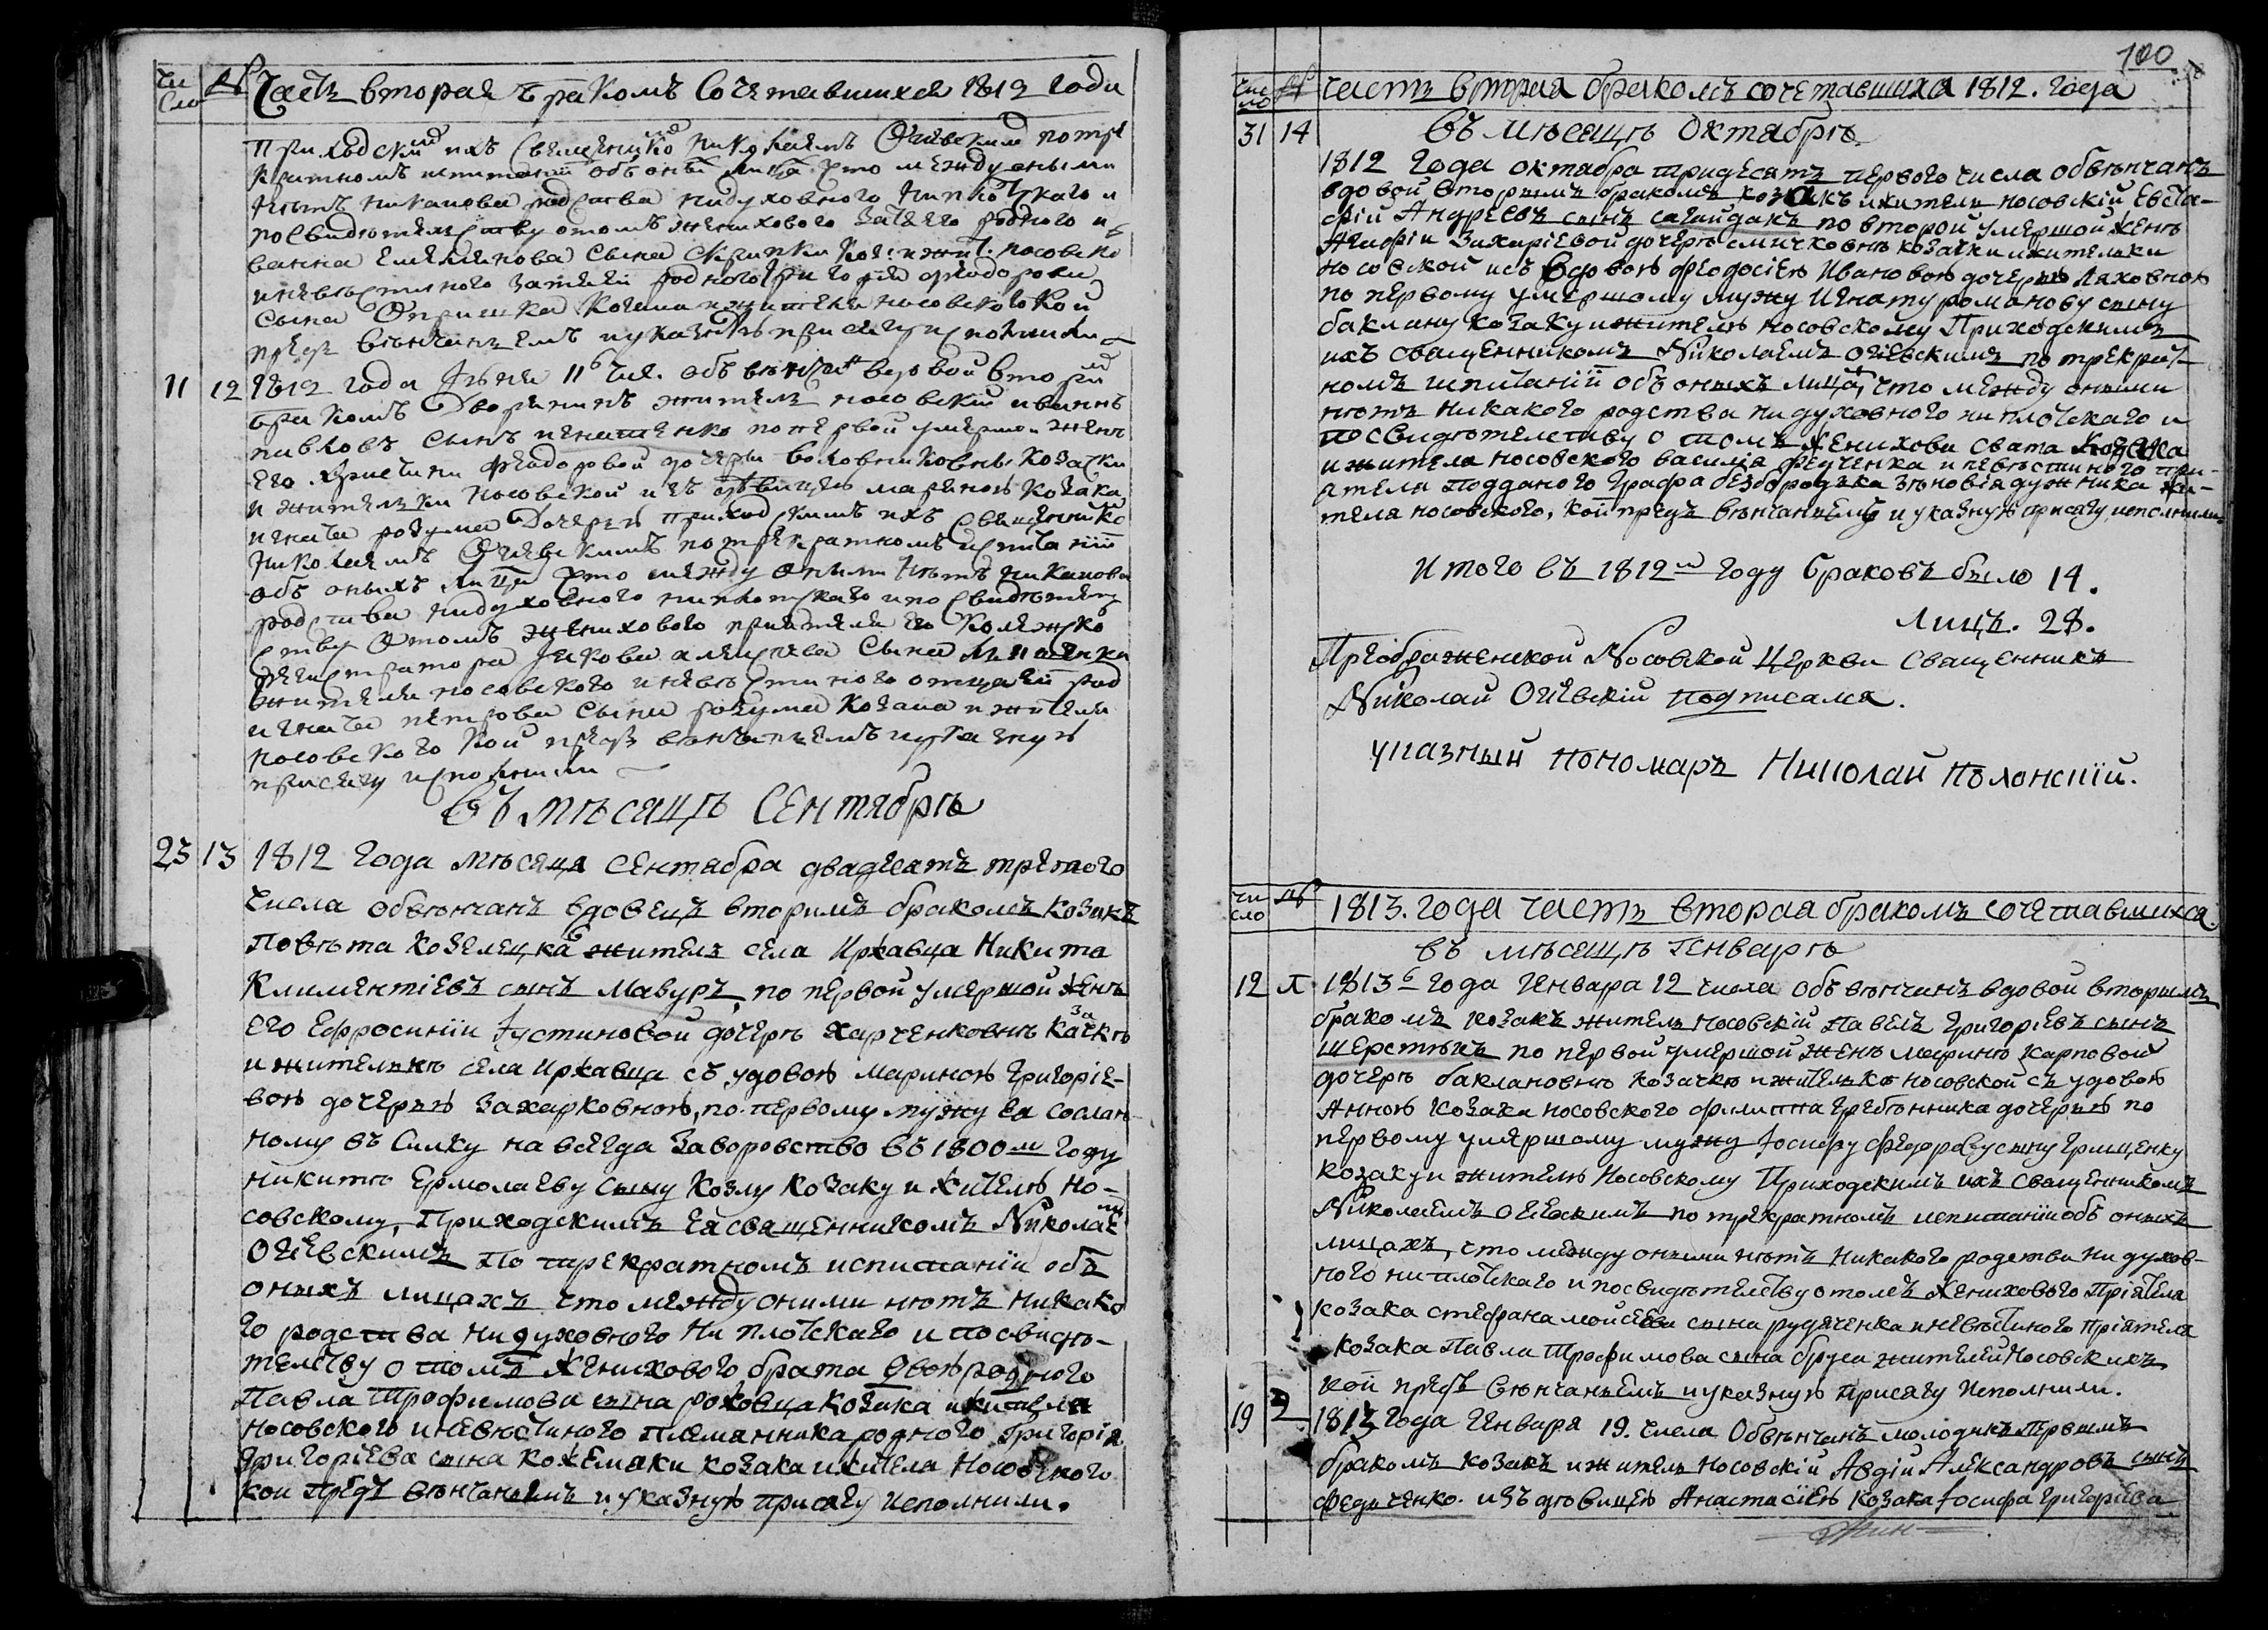 чи
сло
№
Часть вторая бракомъ сочетавшихся 1812 года
приходским ихъ священнико Николаемъ Огіевским по тре
кратномъ испитаніи объ оных лица что между оными
нѣтъ никакова родства ни духовного ни плотскаго и
по свидетелству отомъ женихового зятя его родного и
ванна Емелянова сына Скрипки коз: и жит. носовско
и невѣстиного зятя ей родного Григорія Феодорова
сына Опришка козака и жителя носовского кои
предъ вѣнчаніемъ и указную присягу исполнили
11 12 1812 года Іюня 11го числ. объ вѣнчан вдовой вторим
бракомъ Дворянинъ жителъ носовскій иваннъ
павловъ сынъ игнатенко по первой умершой женѣ
его Христини феодоровой дочери воловниковны козачки
и жителки носовской изъ дѣвицею мариною козака
игната розума дочерью приходскимъ ихъ священнико
николаемъ Огіевскимъ по трекратномъ испитаніи
объ оныхъ лица что между оными нѣтъ никакова
родства ни духовного ни плотскаго и по свидѣтел
ству отомъ женихового пріятеля его колежско
регистратора Іякова алексѣева сына
жителя носовского и невѣстиного отца ей род
игната петрова сына розума козака и жителя
носовского кои предъ вѣнчаніемъ и указную
присягу исполнили
Въ мѣсяцѣ Сентябрѣ
23 13 1812 года мѣсяця сентября двадцать третого
числа обвѣнчанъ вдовецъ вторимъ бракомъ козакъ
повѣта козелецка житель села Иржавца Никита
Климентіевъ сынъ мавуръ, по первой умершой женѣ
его Ефросиніи Іустиновой дочерѣ харченковнѣ казачкѣ
и жителькѣ села Иржавца съ удовою мариною Григоріе-
вою дочерью захарковною, по первому мужу ея сослан-
ному въ Силку на всегда заворовство въ 1800м году
никитѣ Ермолаеву сыну козлу козаку и жителю но-
совскому, Приходскимъ ея священникомъ Николаем
Огіевскимъ по трекратномъ испитаніи объ
оныхъ лицахъ что между оними нѣтъ никако
го родства ни духовного ни плотскаго и по свидѣ-
телству о томъ женихового брата двоюродного
Павла Трофимова сына роховца козака и жителя
носовского и невѣстиного племянника родного Григорія
Григоріева сына кожемяки козака и жителя носовского
кои предъ вѣнчаніемъ и указную присягу исполнили.
100
чис
ло
№
часть вторая бракомъ сочетавшихся 1812. года
въ мѣсяцѣ Октябрѣ
31 14
1812 года октября тридесятъ первого числа обвѣнчанъ
вдовой вторымъ бракомъ козакъ и житель носовскій Евста-
фій Андреевъ сынъ сагайдакъ по второй умершой женѣ
Агафіи Захаріевой дочерѣ смичковнѣ козачки и жителки
носовской изъ вдовою феодосіею Ивановою дочерью Ляховною
по первому умершому мужу Игнату романову сыну
баклану козаку и жителю носовскому Приходскимъ
ихъ священникомъ Николаемъ огіевскимъ по трекрат-
номъ испитаніи объ оныхъ лица, что между оными
нѣтъ никакого родства ни духовного ни плотскаго и
по свидѣтелству о томъ женихови свата козака
и жителя носовского василія федченка и невѣстиного прі-
ятеля подданого графа безбородька зѣновія дужника жи-
теля носовского, кои предъ вѣнчаніемъ и указную присягу исполнили.
Итого въ 1812м году браковъ было 14.
Лицъ. 28.
Преображенской Носовской Церкви священникъ
Николай Огіевскій подписался.
указный пономаръ Николай Полонскій.
чи
сло
№
1813. года часть вторая бракомъ сочетавшихся.
въ мѣсяцѣ генварѣ
12 1813го года генваря 12 числа объ вѣнчанъ вдовой вторымъ
бракомъ козакъ житель носовскій Павелъ Григоріевъ сынъ
шерстюкъ по первой умершой женѣ маринѣ карповой
дочерѣ баклановнѣ козачкѣ и жителкѣ носовской съ удовою
Анною козака носовского филиппа гребѣнника дочерью по
первому умершому мужу Іосифу Федорову сыну грищенку
козаку и жителю носовскому Приходскимъ ихъ священникомъ
Николаемъ огіевскимъ по трекратномъ испитаніи объ оныхъ
лицахъ, что между оными нѣтъ никакого родства ни духов-
ного ни плотскаго и по свидѣтелству о томъ женихового Пріятеля
козака стефана мойсѣева сына рудяченка и невѣстиного Пріятеля
козака Павла Трофимова сына бруса жителей Носовскихъ
кои предъ вѣнчаніемъ и указную присягу исполнили.
19 2 1813 года генваря 19. числа обвѣнчанъ молодикъ первымъ
бракомъ козакъ и житель носовскій Авдій Александровъ сынъ
федченко. изъ дѣвицею Анастасіею козака Іосифа Григоріева